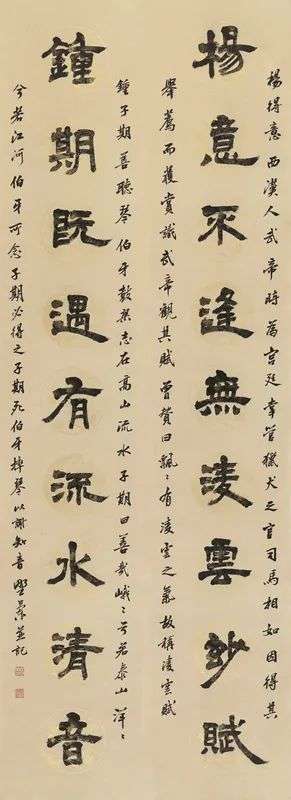 楊意不逢無淩雲妙賦
楊得意西漢人武帝時為宮廷掌管獵犬之官司馬相如因得其
舉薦而獲賞識武帝觀其賦曾贊曰飄〻有淩雲之氣故稱淩雲賦
鍾期既遇有流水清音
鍾子期善聽琴伯牙鼓琴志在高山流水子期曰善哉峨〻兮若泰山洋〻
兮若江河伯牙所念子期必得之子期死伯牙摔琴以謝知音並記